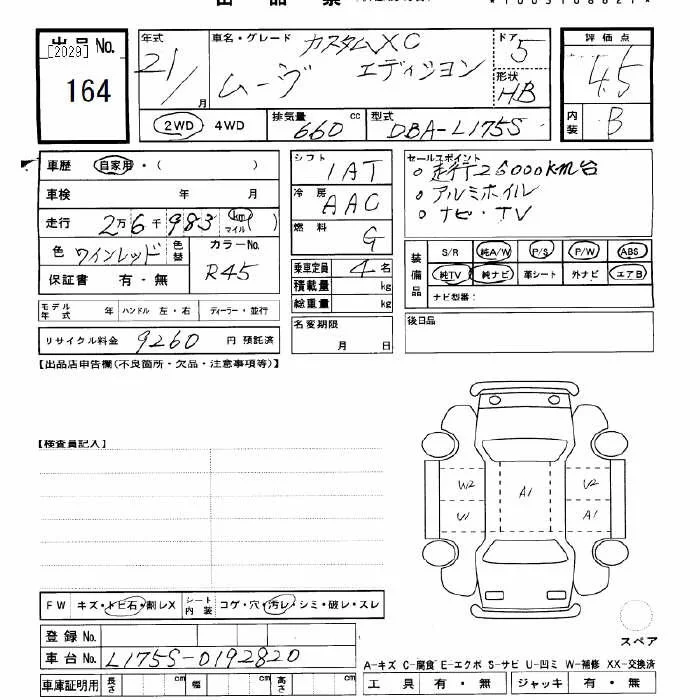 出品No.
[2029]
164
年式
21/
月
車名・グレード
カスタムXC
ムーヴ エディション
ドア
5
形状
HB
評価点
4.5
内装
B
2WD 4WD
排気量 660 cc
型式 DBA-L175S
車歴 自家用・( )
車検 年 月
走行 2万6千983 km マイル ( )
色 ワインレッド 色替
カラーNo.
R45
保証書 有・無
モデル年式 年 ハンドル 左・右 ディーラー・並行
リサイクル料金 9260 円 預託済
シフト
IAT
冷房
AAC
燃料
G
乗車定員 4 名
積載量 kg
総重量 kg
名変期限
月 日
セールスポイント
。走行26000km台
。アルミホイル
。ナビ・TV
装備品
S/R 純A/W P/S P/W ABS
純TV 純ナビ 革シート 外ナビ エアB
ナビ型番:
後日品
【出品店申告欄(不良箇所・欠品・注意事項等)】
【検査員記入】
W2
U1
A1
U2
A1
FW キズ・トビ石・割レX
シート内装 コゲ・穴・汚レ・シミ・破レ・スレ
登録No.
車台No. L175S-0192820
車庫証明用 長さ cm 幅 cm 高さ cm
スペア
A-キズ C-腐食 E-エクボ S-サビ U-凹ミ W-補修 XX-交換済
工具 有・無 ジャッキ 有・無